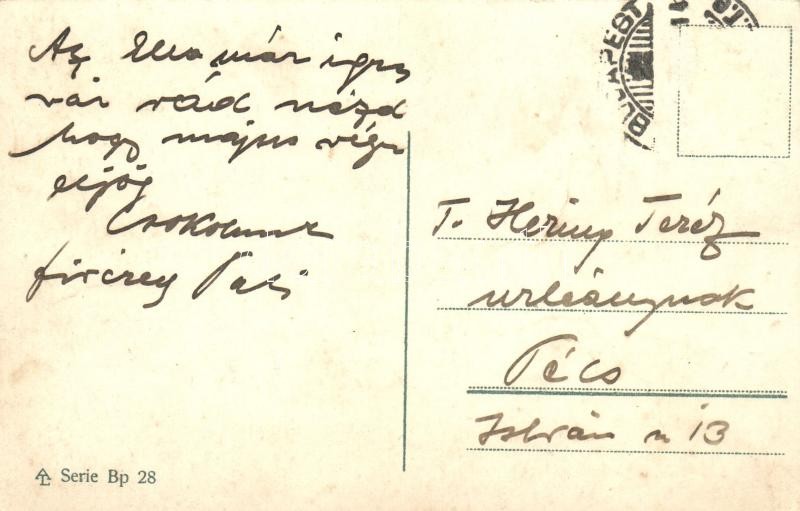 Az Ella már igen
vár reád nézd
hogy május végén
eljöj
Csókolunk
Pali
T. Hering Teréz
urleánynak
Pécs
István u 13
BUDAPEST
Serie Bp 28